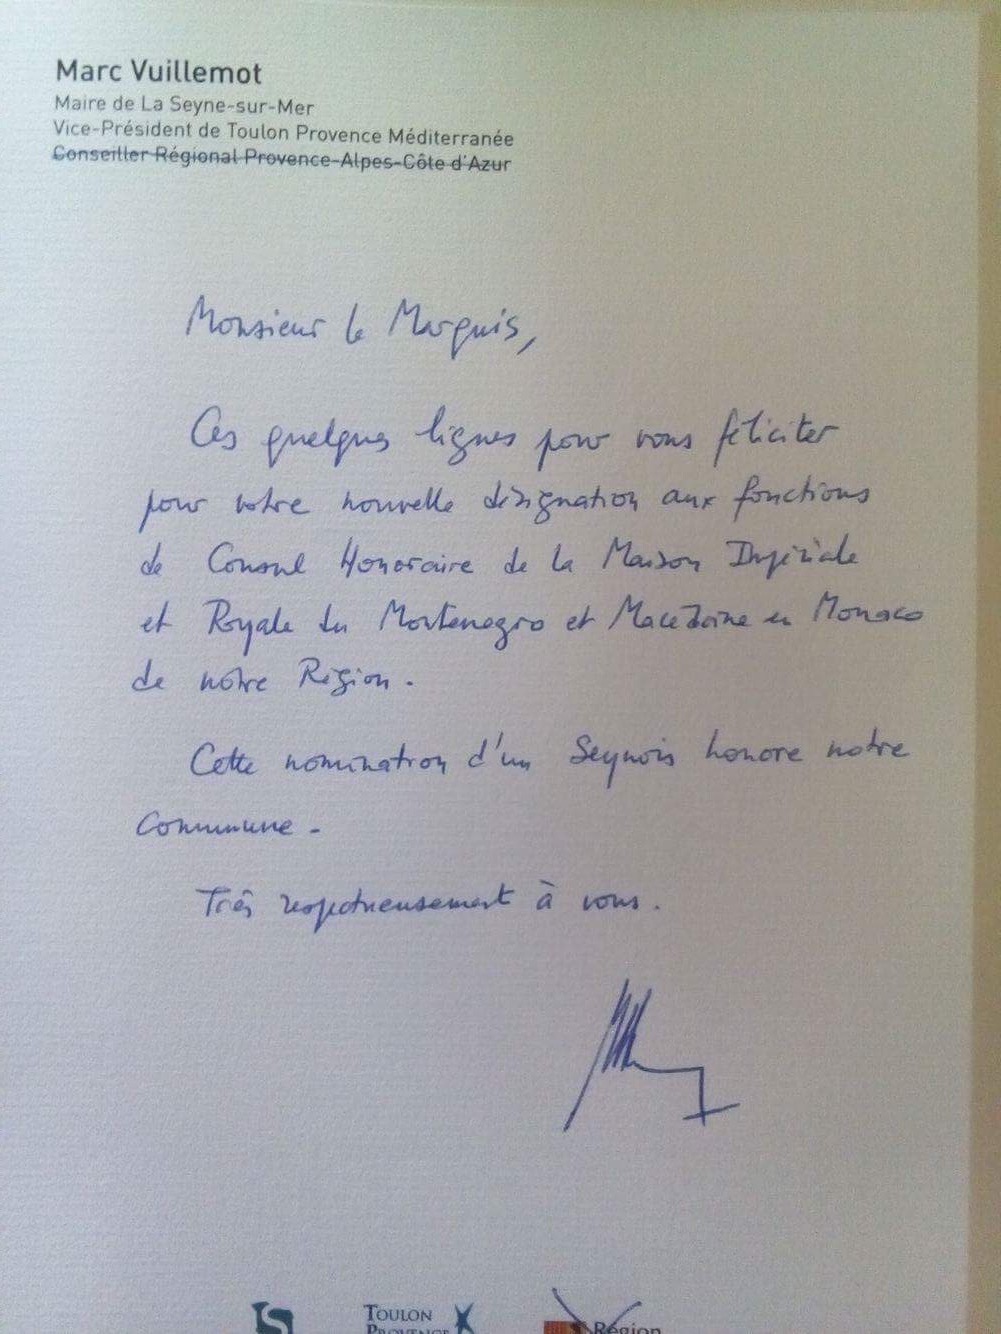 Marc Vuillemot
Maire de La Seyne-sur-Mer
Vice-Président de Toulon Provence Méditerranée
Conseiller Régional Provence-Alpes-Côte d'Azur
Monsieur le Marquis,
Ces quelques lignes pour vous féliciter
pour votre nouvelle désignation aux fonctions
de Consul Honoraire de la Maison Impériale
et Royale du Montenegro et Macédoine en Monaco
de notre Région.
Cette nomination d'un Seynois honore notre
Commune.
Très respectueusement à vous.
TOULON
PROVENCE
Région